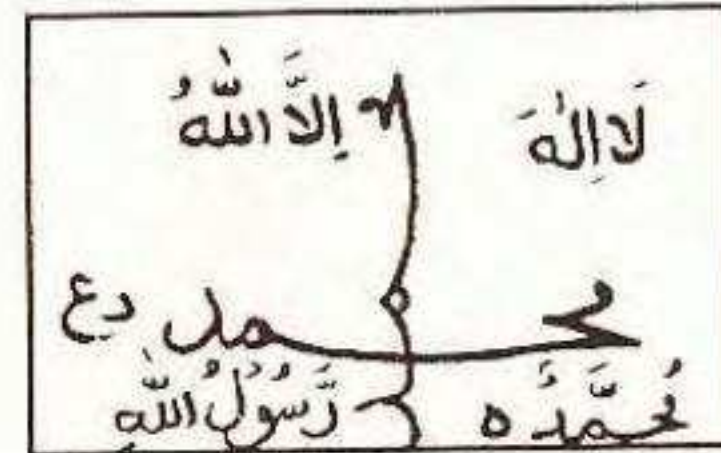 لَا اِلٰهَ اِلَّا اللّٰهُ
محمد
مُحَمَّدُ رَّسُوْلُ اللّٰهِ